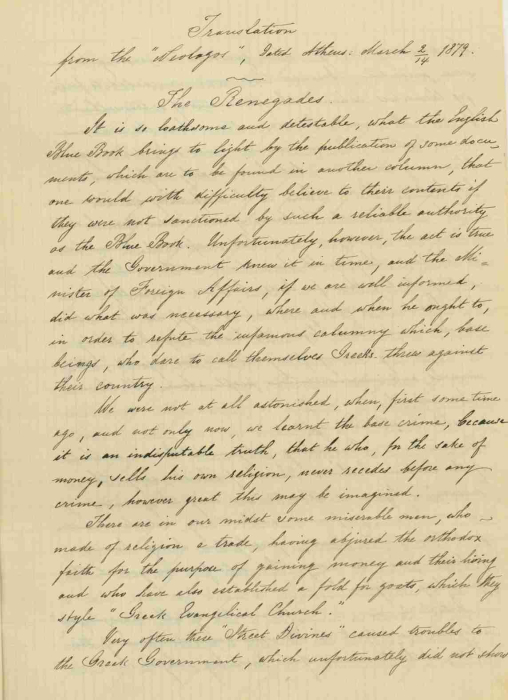 Translation
from the "Neologos", dated Athens: March 2/14 1879.
The Renegades.
It is so loathsome and detestable, what the English
Blue Book brings to light by the publication of some docu-
ments, which are to be found in another column, that
one would with difficulty believe to their contents if
they were not sanctioned by such a reliable authority
as the Blue Book. Unfortunately, however, the act is true
and the Government knew it in time, and the Mi-
nister of Foreign Affairs, if we are well informed,
did what was necessary, where and when he ought to,
in order to refute the infamous calumny which, base
beings, who dare to call themselves Greeks, threw against
their country.
We were not at all astonished, when, first some time
ago, and not only now, we learnt the base crime, because
it is an indisputable truth, that he who, for the sake of
money, sells his own religion, never recedes before any
crime, however great this may be imagined.
There are in our midst some miserable men, who
made of religion a trade, having abjured the orthodox
faith for the purpose of gaining money and their living
and who have also established a fold for goats, which they
style "Greek Evangelical Church."
Very often these "Street Divines" caused troubles to
the Greek Government, which unfortunately did not show